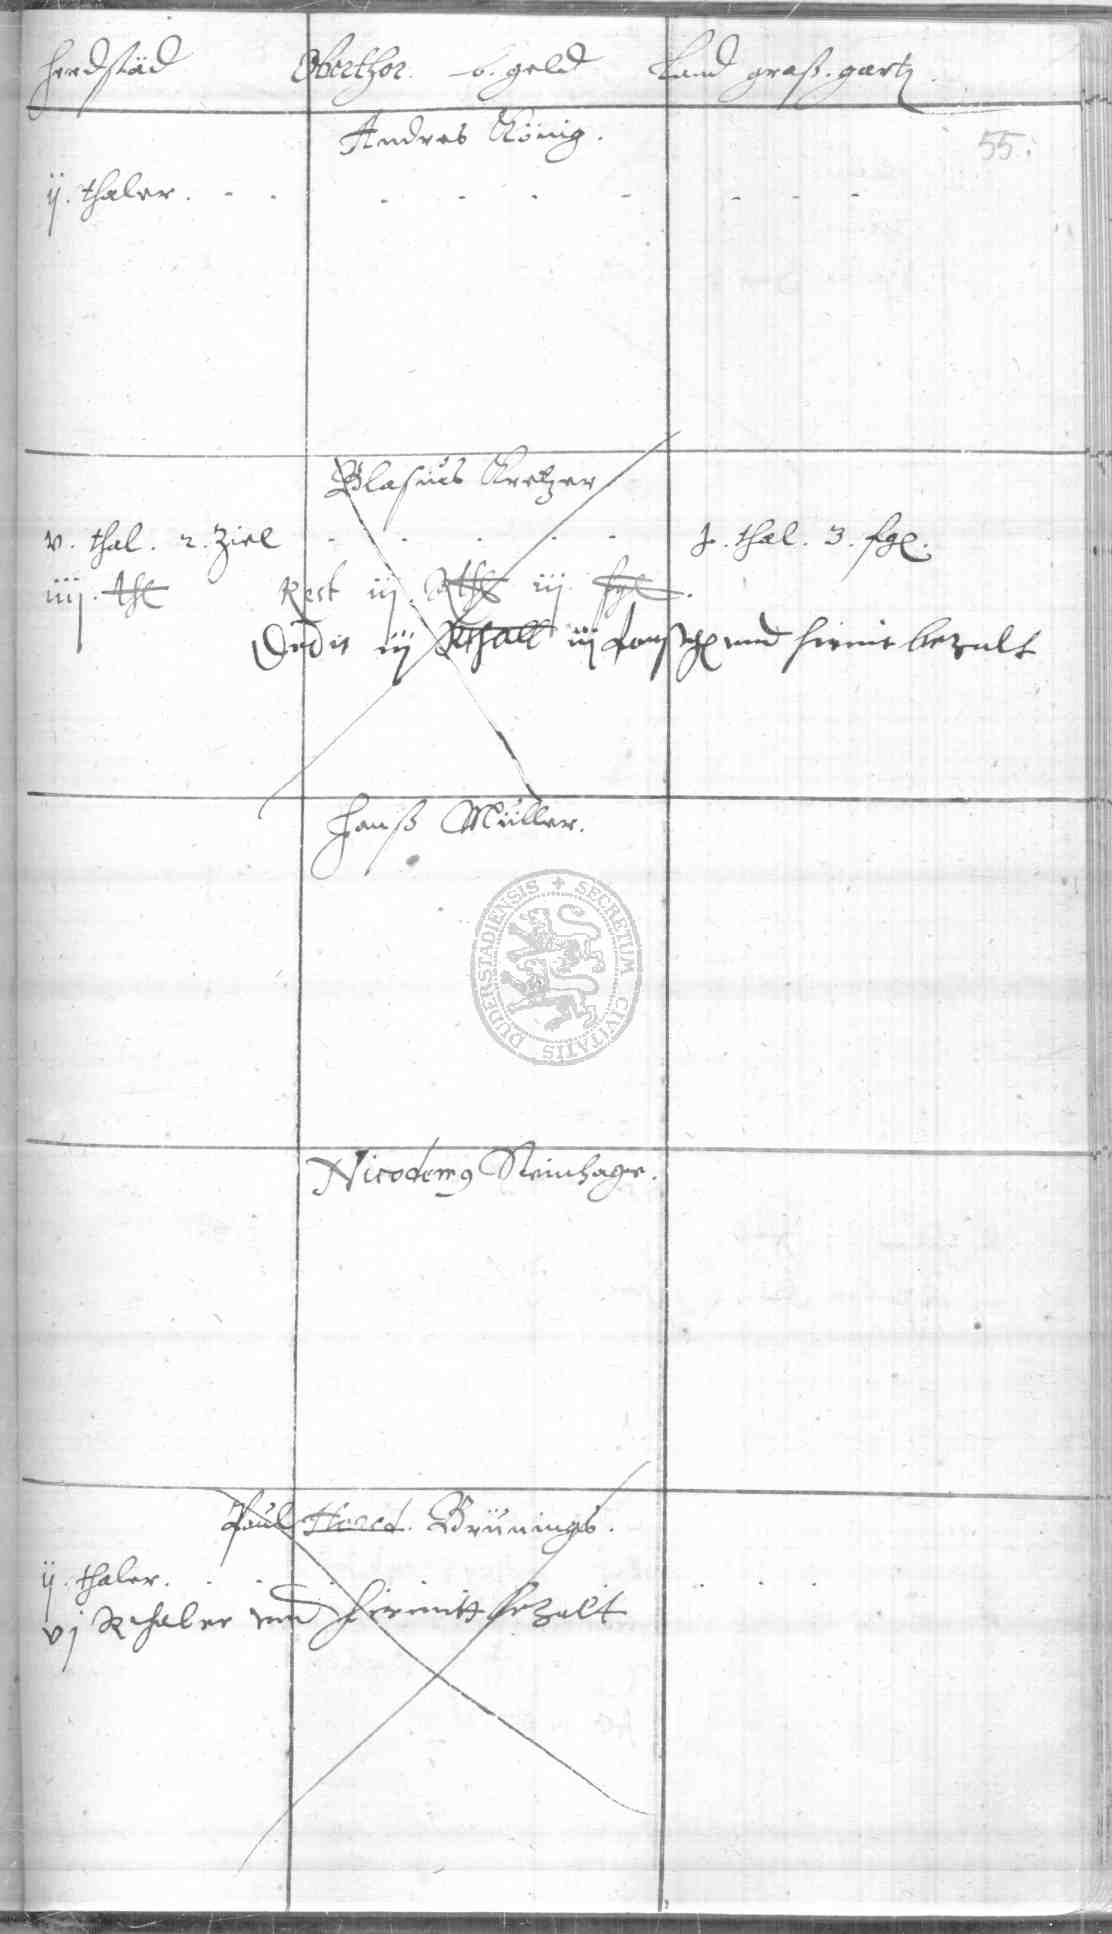 Herdstäd Oberthor. b. geld Land graß. gartz.
55.
Andres König.
ij. thaler. - - - - - - - - -
Blasius Kretzer
v. thal. 2. Ziel - - - - - j. thal. 3. sgl.
iiij. thl Rest iij. Rthl iij. sgl.
Dedit iij Rthall iij und hirmit bezalt
Hanß Müller.
SECRETUM CIVITATIS DUDERSTADIENSIS
Nicodemg Steinhage.
Paul Hored. Brünings.
ij. thaler.
vj Rthaler und hirmitt bezalt